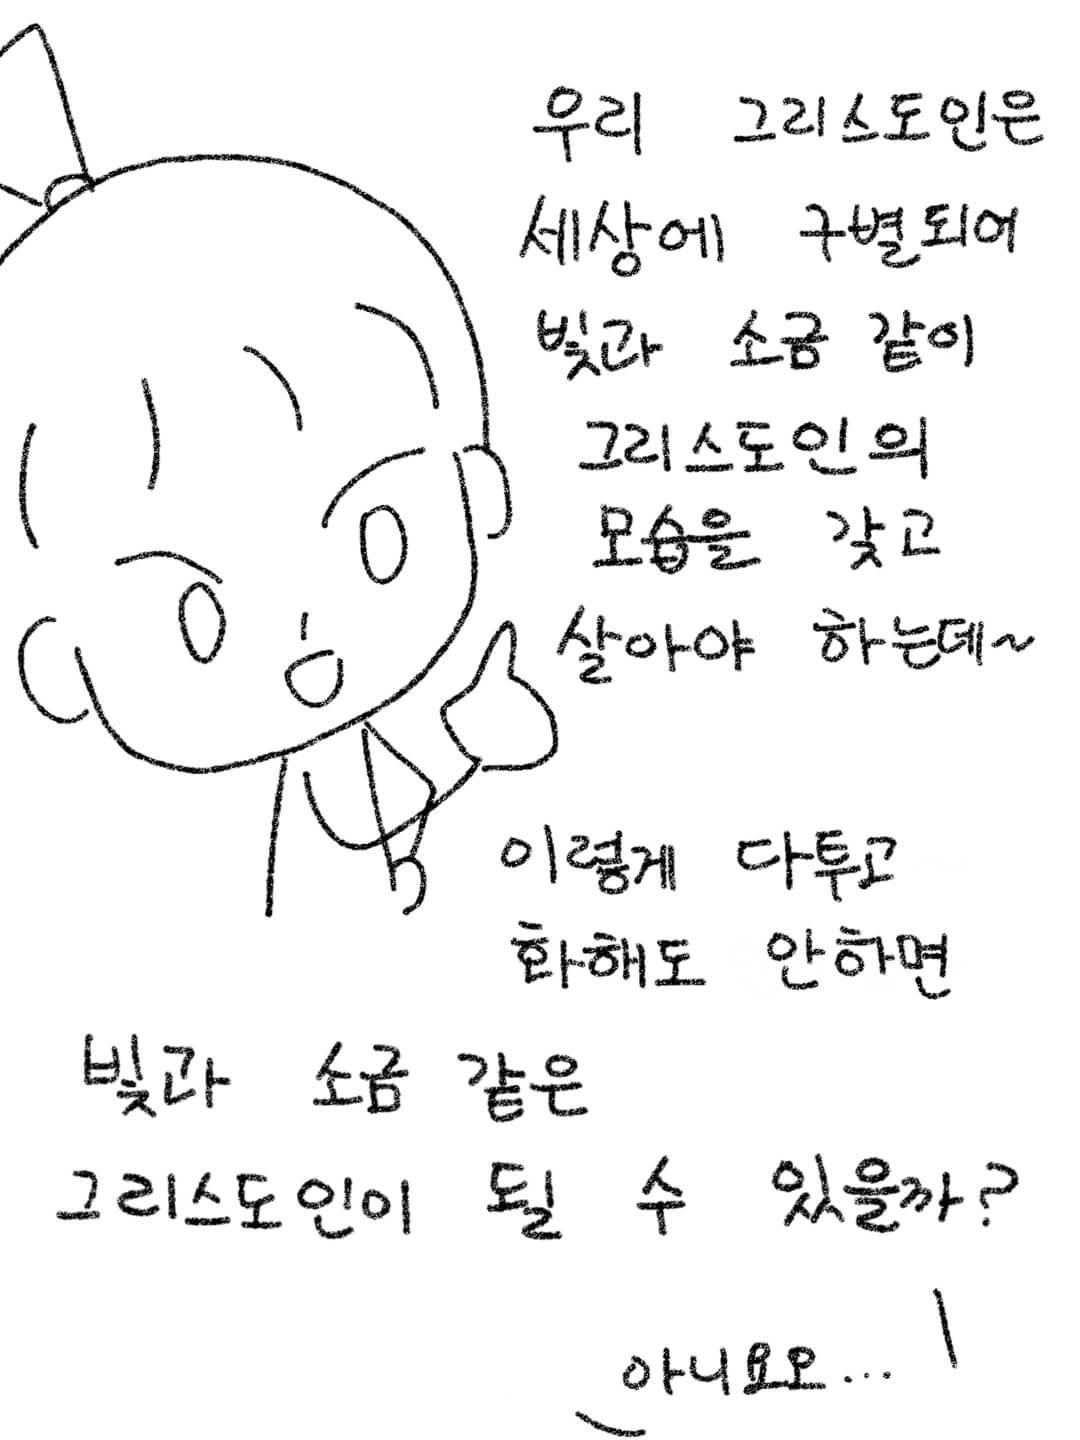 우리 그리스도인은
세상에 구별되어
빛과 소금 같이
그리스도인의
모습을 갖고
살아야 하는데~
이렇게 다투고
화해도 안하면
빛과 소금 같은
그리스도인이 될 수 있을까?
아니요오...